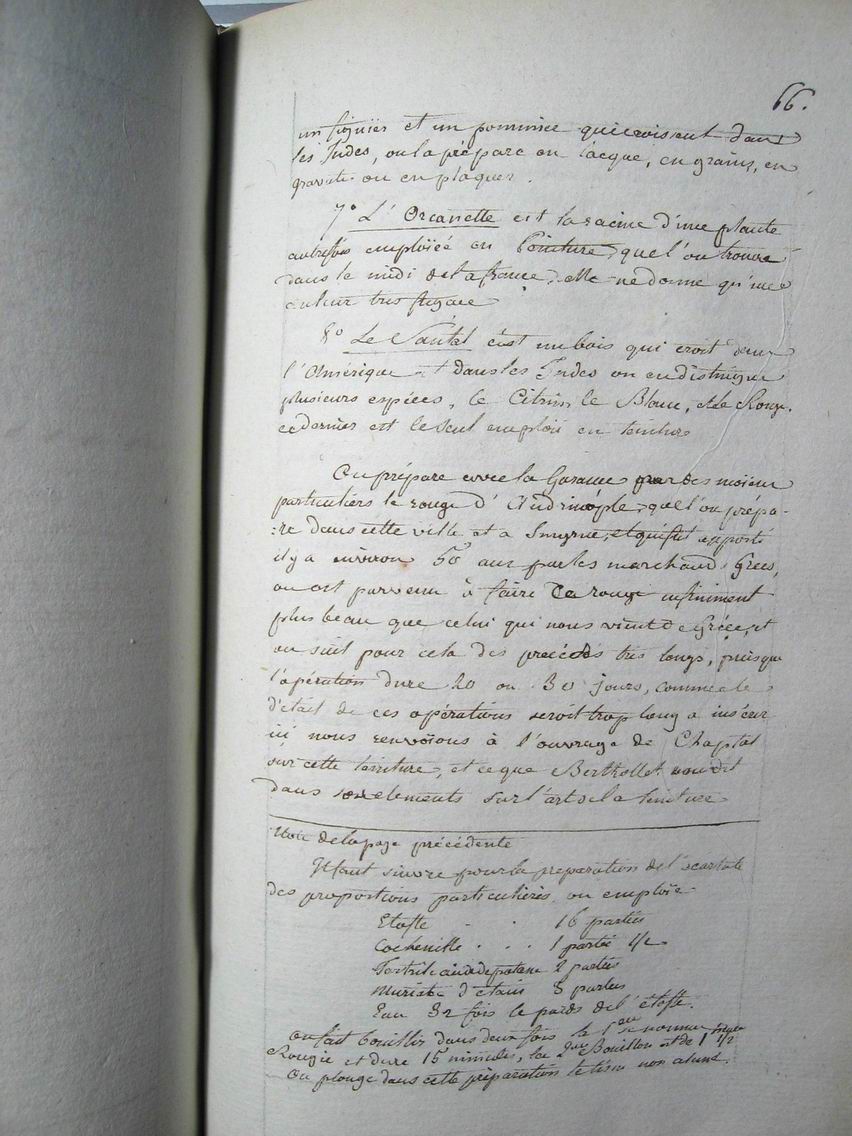 66.
un figuier et un pommier qui croissent dans
les Indes, on la prépare en lacque, en grains, en
gravate ou en plaques.
7° L'Orcanette est la racine d'une plante
autrefois emploiée en teinture, que l'on trouve
dans le midi de la france, elle ne donne qu'une
couleur tres fugace
8° Le Santal c'est un bois qui croit dans
l'Amérique et dans les Indes on en distingue
plusieurs espéces, le Citrin, le Blanc, et le Rouge.
ce dernier est le seul emploié en teinture
On prépare avec la Garance par des moiens
particuliers le rouge d'Andrinople, que l'on prépa-
:re dans cette ville et a Smyrne, et qui fut apporté
il y a environ 50 ans par les marchands Grecs,
on est parvenu à faire ce rouge infiniment
plus beau que celui qui nous vient de Gréce, et
on suit pour cela des procédés tres longs, puisque
l'opération dure 20 ou 30 jours, comme le
détail de ces opérations seroit trop long a insérer
ici nous renvoions à l'ouvrage de Chaptal
sur cette teinture, et ce que Berthollet en dit
dans ses elements sur l'art de la teinture
Note de la page précédente
Il faut suivre pour la preparation de l'ecarlate
des proportions particulières, on emploie
Etoffe . . 16 parties
Cochenille . . . 1 partie 1/2
Tartrite acide de potasse 2 parties
Muriate d'étain 8 parties
Eau 32 fois le poids de l'étoffe.
on fait bouillir dans deux fois, la 1ere se nomme
Rougie et dure 15 minutes, la 2me Bouillon et de 1 heure 1/2
On plonge dans cette préparation le tissu non aluné.